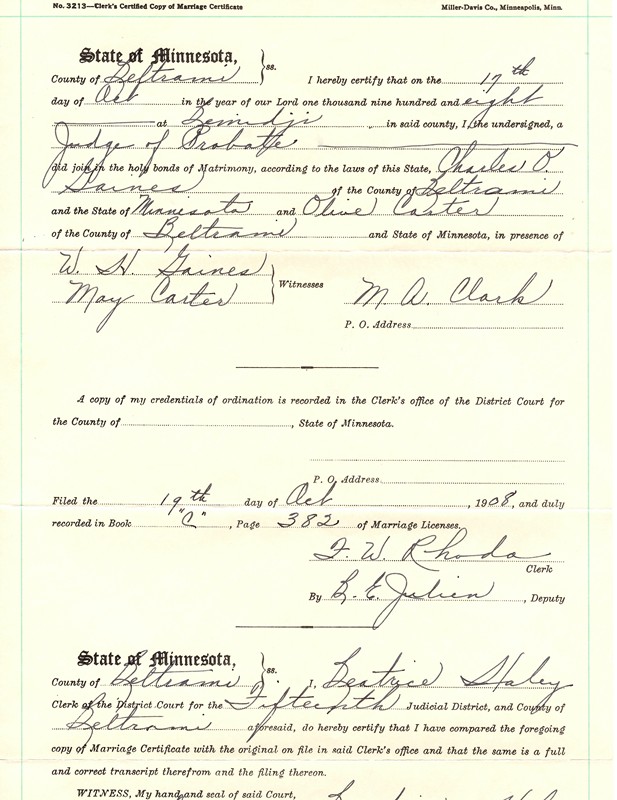 No. 3213—Clerk's Certified Copy of Marriage Certificate Miller-Davis Co., Minneapolis, Minn.
State of Minnesota, } ss.
County of Beltrami I hereby certify that on the 17th
day of Oct in the year of our Lord one thousand nine hundred and eight
at Bemidji in said county, I, the undersigned, a
Judge of Probate
did join in the holy bonds of Matrimony, according to the laws of this State, Charles O.
Gaines of the County of Beltrami
and the State of Minnesota and Olive Carter
of the County of Beltrami and State of Minnesota, in presence of
W. H. Gaines
May Carter } Witnesses M. A. Clark
P. O. Address
A copy of my credentials of ordination is recorded in the Clerk's office of the District Court for
the County of , State of Minnesota.
P. O. Address
Filed the 19th day of Oct , 1908, and duly
recorded in Book "C" , Page 382 of Marriage Licenses.
F. W. Rhoda
Clerk
By R. E. Julien , Deputy
State of Minnesota, } ss.
County of Beltrami I, Beatrice Haley
Clerk of the District Court for the Fifteenth Judicial District, and County of
Beltrami aforesaid, do hereby certify that I have compared the foregoing
copy of Marriage Certificate with the original on file in said Clerk's office and that the same is a full
and correct transcript therefrom and the filing thereon.
WITNESS, My hand and seal of said Court,